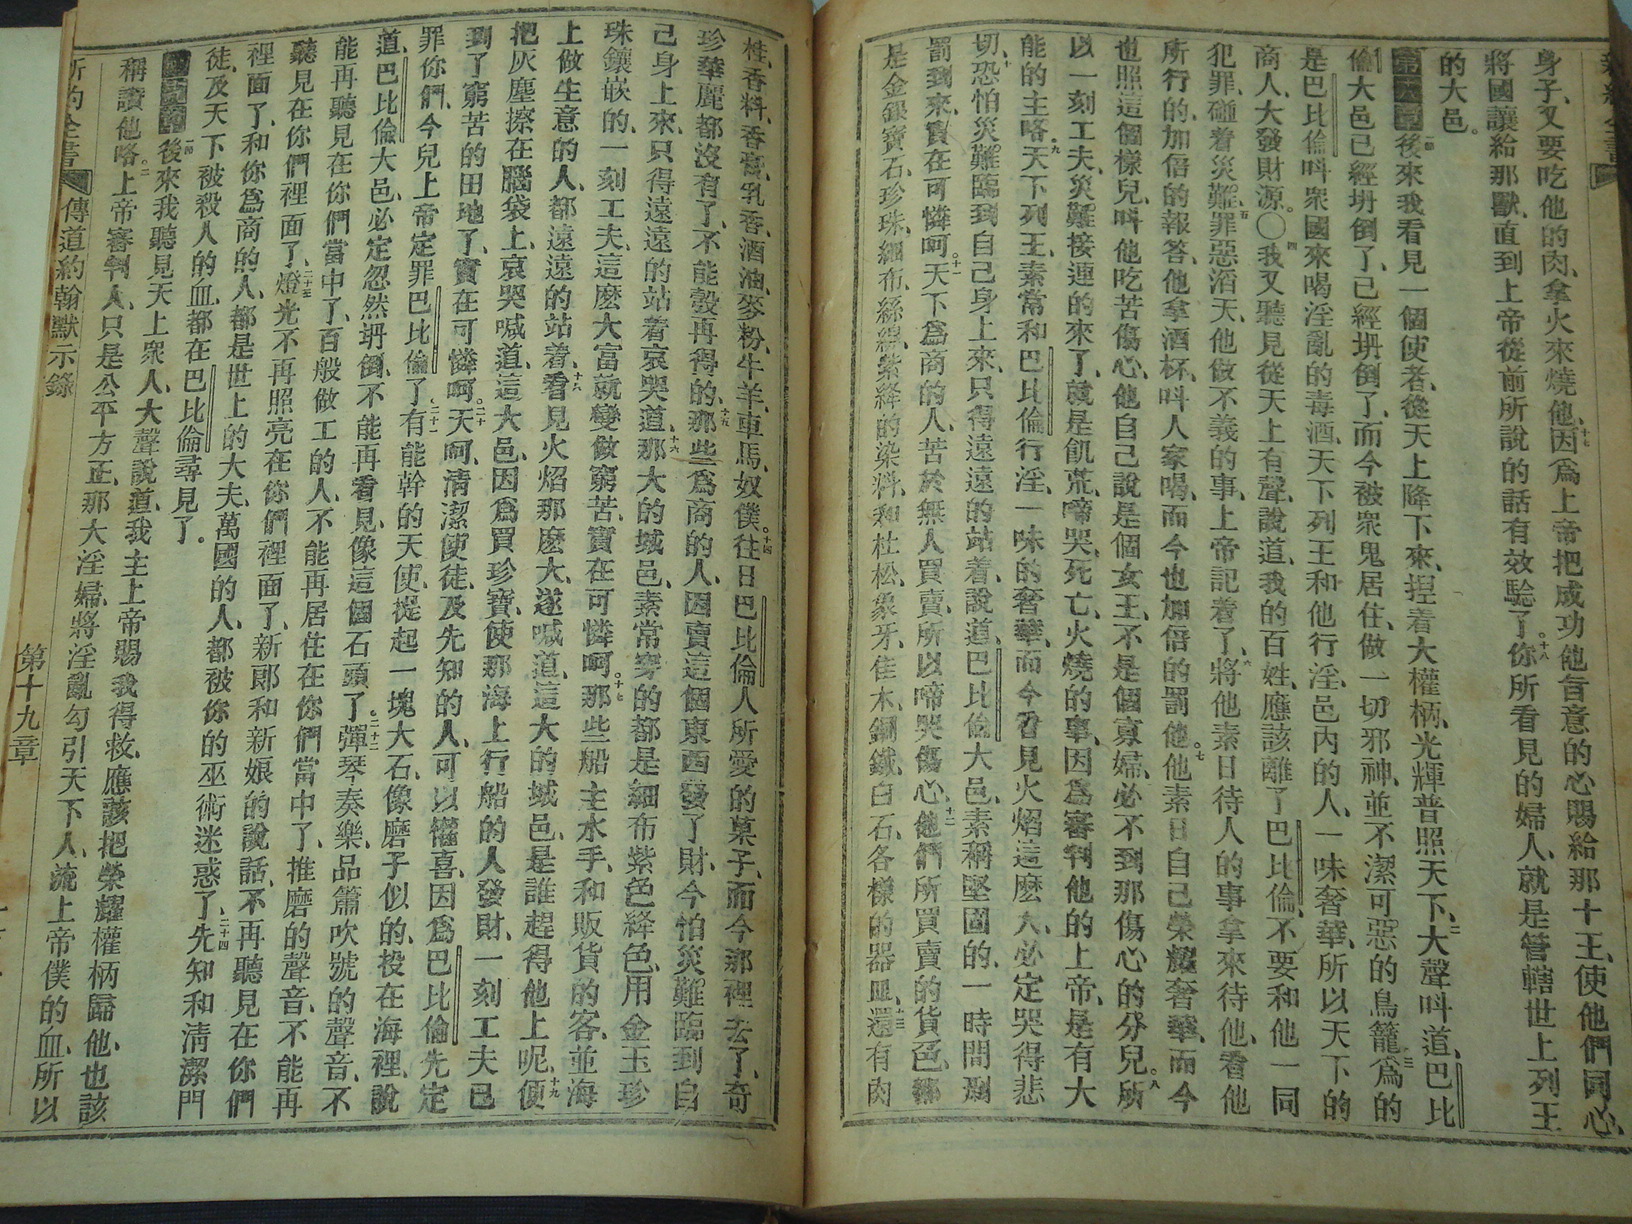 身子、又要吃他的肉、拿火來燒他、十七因爲上帝把成功他旨意的心賜給那十王、使他們同心、
將國讓給那獸、直到上帝從前所說的話有效騐了。十八你所看見的婦人、就是管轄世上列王
的大邑。
後來我看見一個使者、從天上降下來、揑着大權柄、光輝普照天下、二大聲呌道、巴比
倫大邑已經坍倒了、已經坍倒了、而今被衆鬼居住、做一切邪神、並不潔可惡的鳥籠、三爲的
是巴比倫呌衆國來喝淫亂的毒酒、天下列王和他行淫、邑內的人、一味奢華、所以天下的
商人、大發財源。〇四我又聽見從天上有聲、說道、我的百姓、應該離了巴比倫、不要和他一同
犯罪、碰着災難。五罪惡滔天、他做不義的事、上帝記着了、六將他素日待人的事拿來待他、看他
所行的、加倍的報答、他拿酒杯、呌人家喝、而今也加倍的罰他。七他素日自己榮耀奢華、而今
也照這個樣兒、呌他吃苦傷心、他自己說是個女王、不是個寡婦、必不到那傷心的分兒、八所
以一刻工夫、災難接連的來了、就是飢荒、啼哭、死亡、火燒的事、因爲審判他的上帝、是有大
能的主咯。九天下列王、素常和巴比倫行淫、一味的奢華、而今看見火焰這麽大、必定哭得悲
切、十恐怕災難臨到自己身上來、只得遠遠的站着、說道、巴比倫大邑、素稱堅固的、一時間刑
罰到來、實在可憐呵。十一天下爲商的人、苦於無人買賣、所以啼哭傷心、十二他們所買賣的貨色、都
是金銀寶石、珍珠、細布絲綿、紫絳的染料、和杜松、象牙、佳木、銅鐵、白石、各樣的器皿、十三還有肉
桂、香料、香膏、乳香、酒油、麥粉、牛羊、車馬、奴僕。十四往日巴比倫人所愛的菓子、而今那裡去了、奇
珍華麗都沒有了、不能彀再得的、十五那些爲商的人、因賣這個東西發了財、今怕災難臨到自
己身上來、只得遠遠的站着哀哭道、十六那大的城邑、素常穿的都是細布紫色絳色、用金玉珍
珠鑲嵌的、一刻工夫、這麽大富就變做窮苦、實在可憐呵。十七那些船主水手、和販貨的客、並海
上做生意的人、都遠遠的站着、十八看見火焰那麽大、遂喊道、這大的城邑、是誰趕得他上呢、十九便
把灰塵擦在腦袋上、哀哭喊道、這大邑、因爲買珍寶、使那海上行船的人發財、一刻工夫已
到了窮苦的田地了、實在可憐呵。二十天呵、淸潔使徒、及先知的人、可以懽喜、因爲巴比倫先定
罪你們、今兒上帝定罪巴比倫了、二十一有能幹的天使、提起一塊大石、像磨子似的、投在海裡、說
道、巴比倫大邑、必定忽然坍倒、不能再看見、像這個石頭了。二十二彈琴奏樂、品簫吹號的聲音、不
能再聽見在你們當中了、百般做工的人、不能再居住在你們當中了、推磨的聲音、不能再
聽見在你們裡面了、二十三燈光不再照亮在你們裡面了、新郞和新娘的說話、不再聽見在你們
裡面了、和你爲商的人、都是世上的大夫、萬國的人、都被你的巫術迷惑了、二十四先知和淸潔門
徒、及天下被殺人的血、都在巴比倫尋見了。
一節後來我聽見天上衆人、大聲說道、我主上帝賜我得救、應該把榮耀權柄歸他、也該
稱讚他咯。二上帝審判人、只是公平方正、那大淫婦、將淫亂勾引天下人、流上帝僕的血、所以
新約全書 傳道約翰默示錄 第十九章